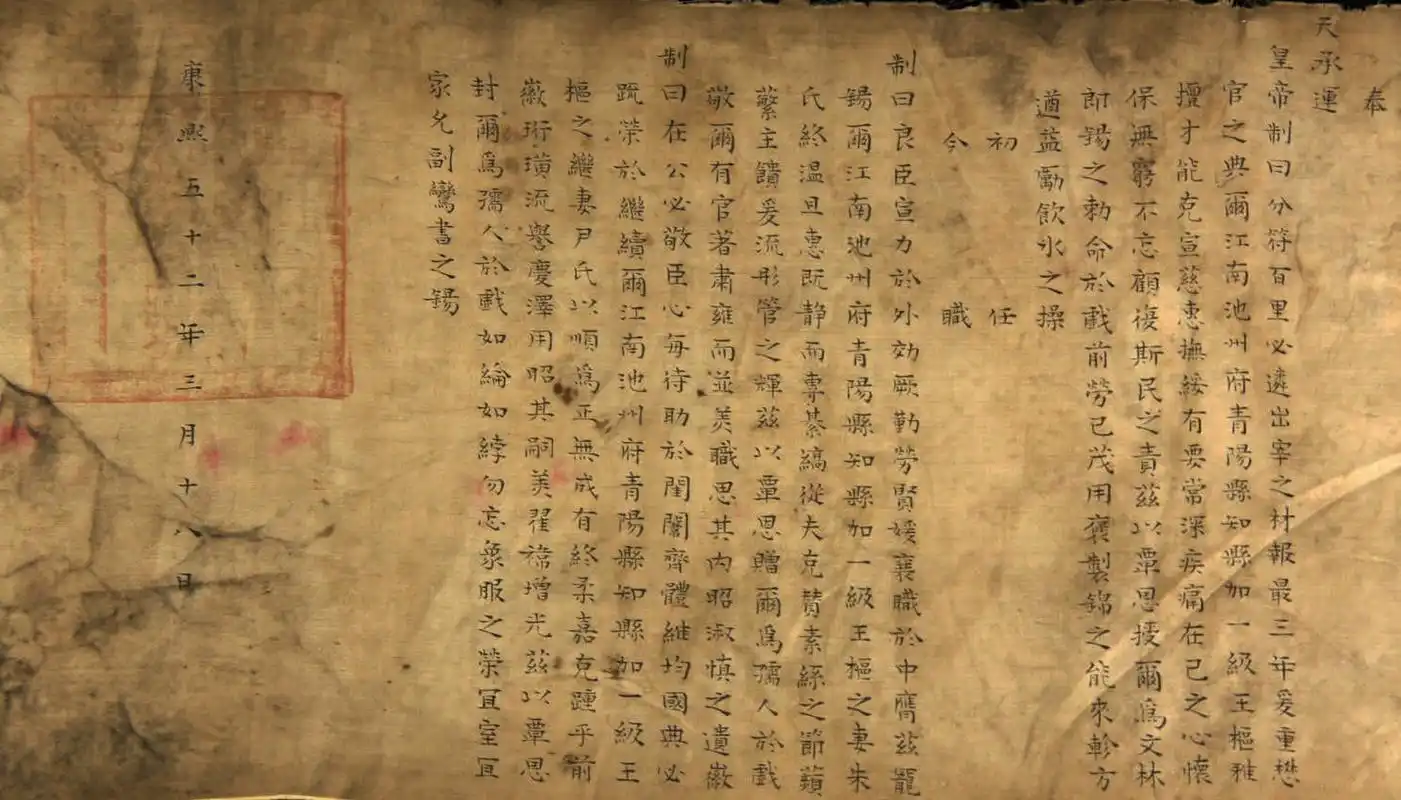 奉
天承運
皇帝制曰分符百里必遴出宰之材報最三年爰重懋
官之典爾江南池州府青陽縣知縣加一級王樞雅
擅才能克宣慈惠撫綏有要常深疾痛在己之心懷
保無窮不忘顧復斯民之責茲以覃恩授爾為文林
郎錫之勅命於戲前勞已茂用褒製錦之能來軫方
遒益勵飲氷之操
初任
今職
制曰良臣宣力於外効厥勤勞賢媛襄職於中膺茲寵
錫爾江南池州府青陽縣知縣加一級王樞之妻朱
氏終溫且惠既静而專綦縞從夫克贊素絲之節蘋
蘩主饋爰流彤管之輝茲以覃恩贈爾為孺人於戲
敬爾有官著肅雍而並美職思其内昭淑慎之遺徽
制曰在公必敬臣心每待助於閨闈齊體維均國典必
疏榮於繼續爾江南池州府青陽縣知縣加一級王
樞之繼妻尹氏以順為正無成有終柔嘉克踵乎前
徽珩璜流譽慶澤用昭其嗣美翟褕增光茲以覃恩
封爾為孺人於戲如綸如綍勿忘象服之榮宜室宜
家允副鸞書之錫
康熙五十二年三月十八日